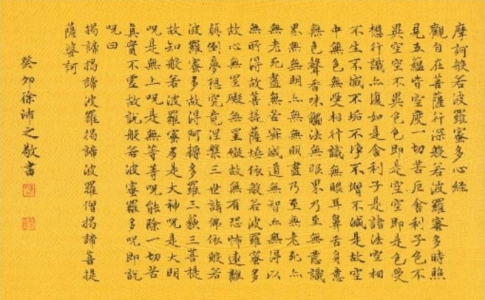 摩訶般若波羅蜜多心經
觀自在菩薩行深般若波羅蜜多時照
見五蘊皆空度一切苦厄舍利子色不
異空空不異色色即是空空即是色受
想行識亦復如是舍利子是諸法空相
不生不滅不垢不淨不增不減是故空
中無色無受想行識無眼耳鼻舌身意
無色聲香味觸法無眼界乃至無意識
界無無明亦無無明盡乃至無老死亦
無老死盡無苦集滅道無智亦無得以
無所得故菩提薩埵依般若波羅蜜多
故心無罣礙無罣礙故無有恐怖遠離
顛倒夢想究竟涅槃三世諸佛依般若
波羅蜜多故得阿耨多羅三藐三菩提
故知般若波羅蜜多是大神呪是大明
呪是無上呪是無等等呪能除一切苦
真實不虛故說般若波羅蜜多呪即說
呪曰
揭諦揭諦波羅揭諦波羅僧揭諦菩提
薩婆訶
癸卯徐沛之敬書